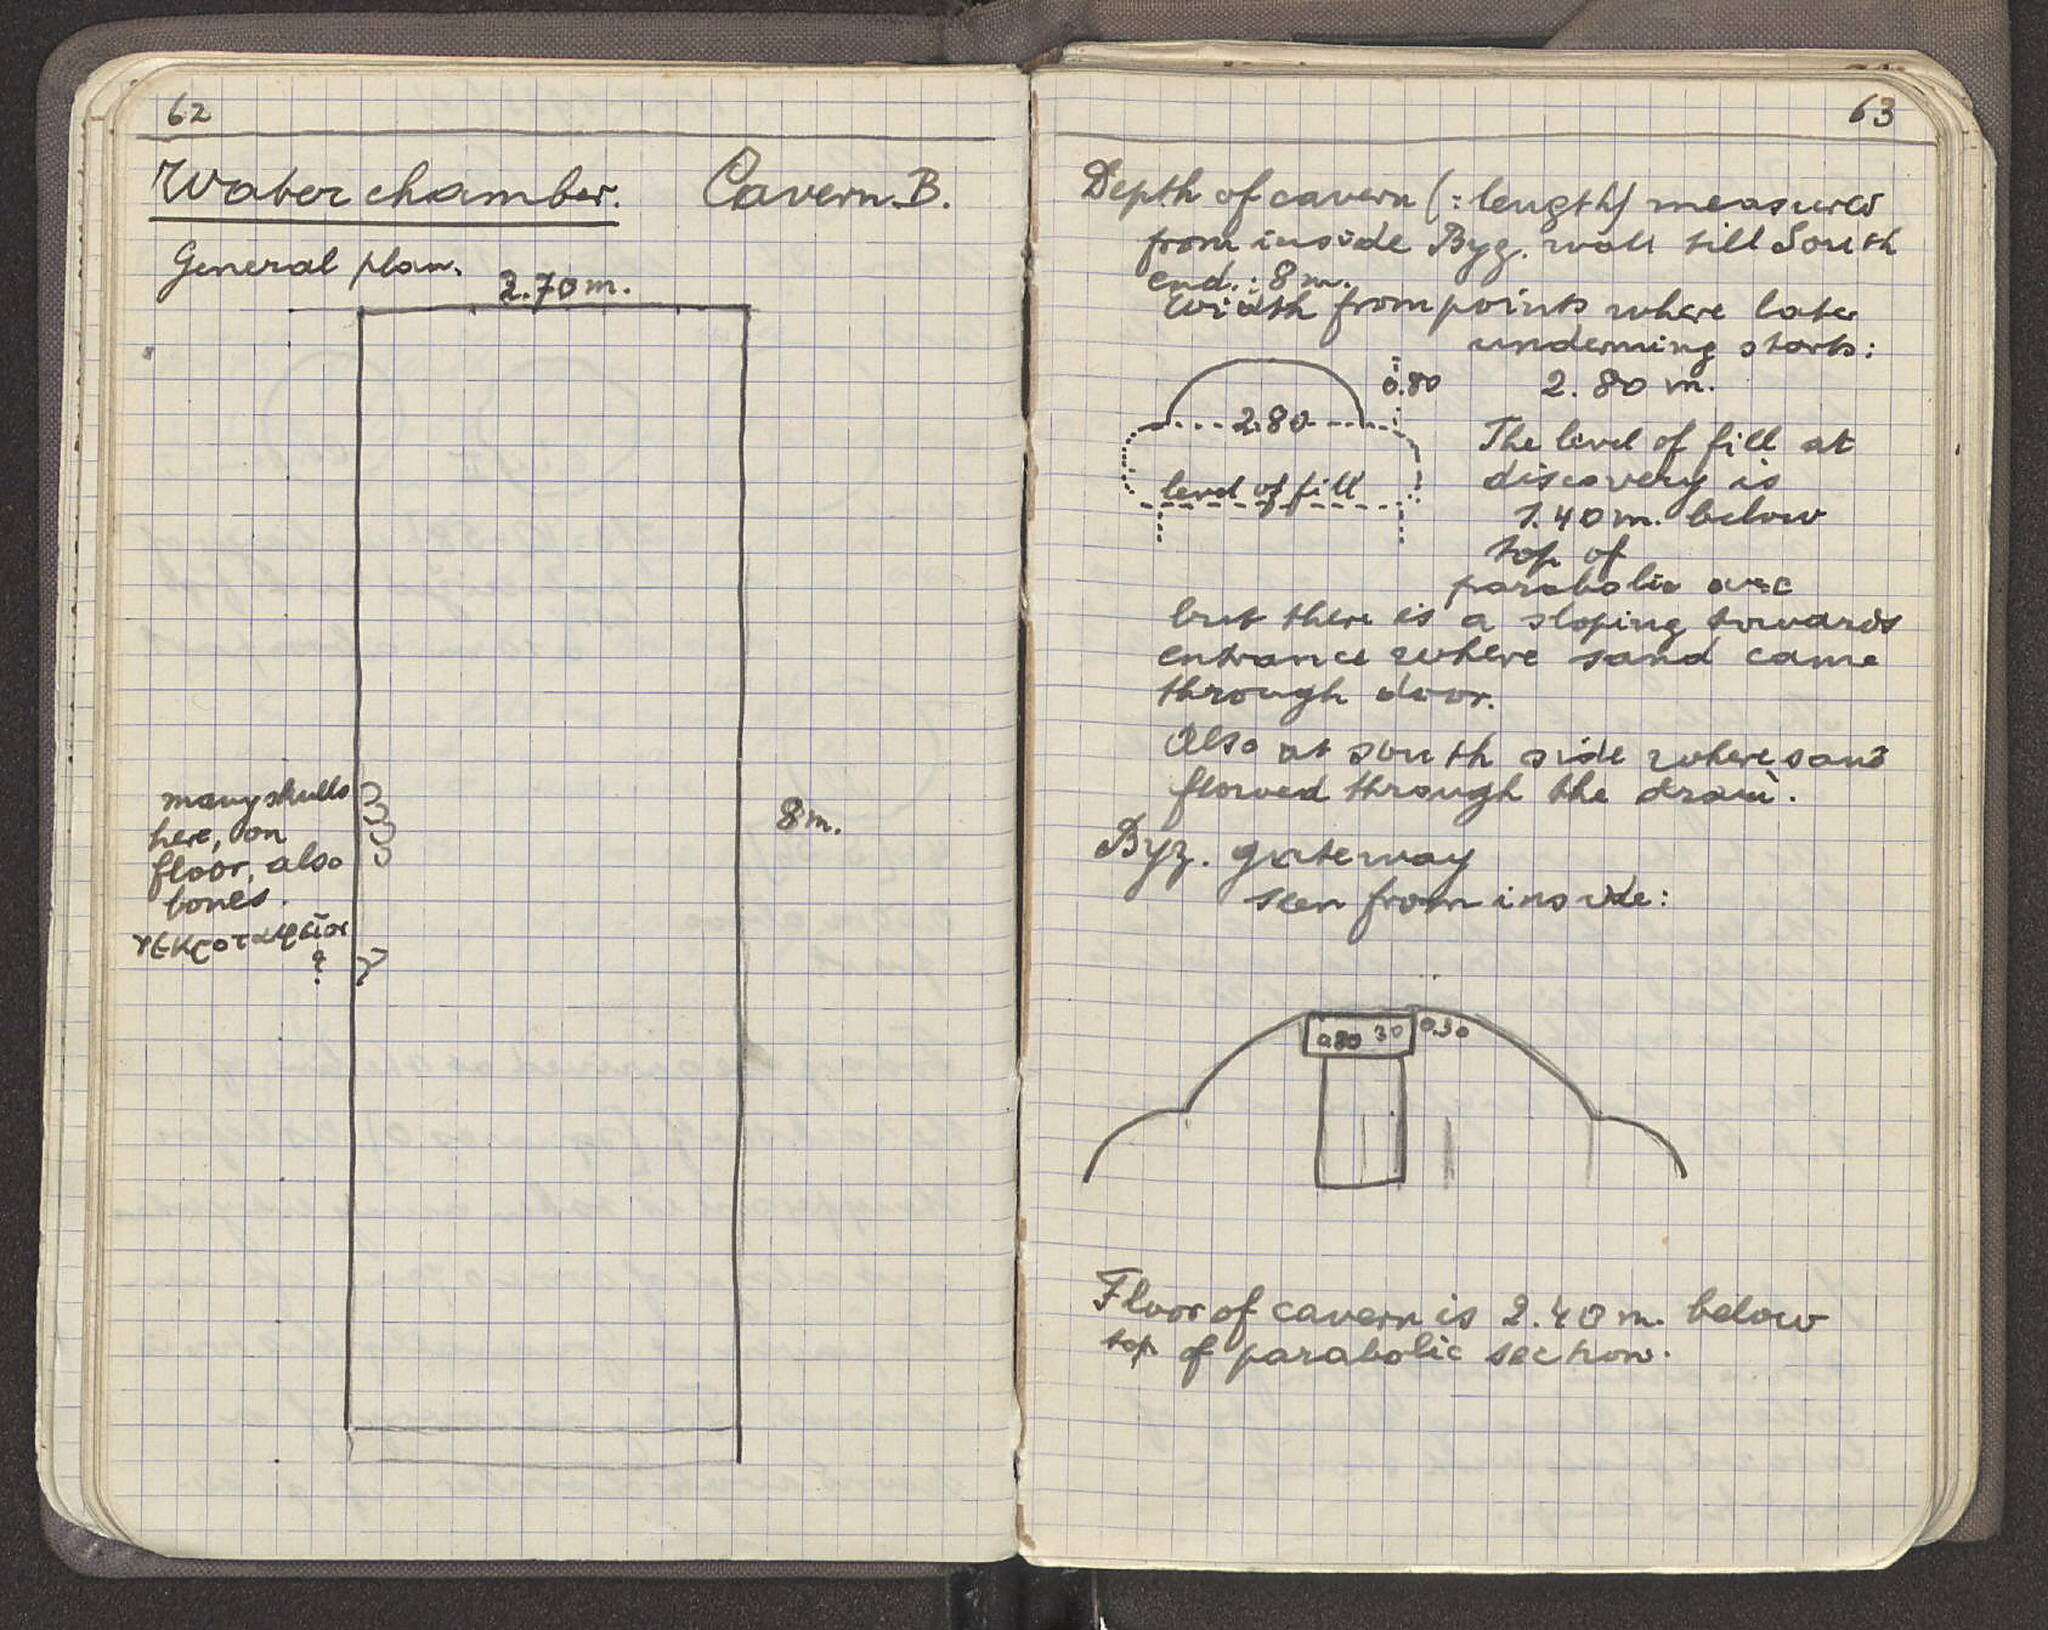 62
Water chamber. Cavern. B.
General plan.
2.70 m.
many skulls
here, on
floor, also
bones.
νεκροταφεῖον
?
8 m.
63
Depth of cavern (= length) measured
from inside Byz. wall till South
end.: 8 m.
Width from points where later
undermining starts:
2.80 m.
0.80
2.80
level of fill
The level of fill at
discovery is
1.40 m. below
top of
parabolic arc
but there is a sloping towards
entrance where sand came
through door.
Also at south side where sand
flowed through the drain.
Byz. gateway
seen from inside:
0.80 30 0.30
Floor of cavern is 2.40 m. below
top of parabolic section.